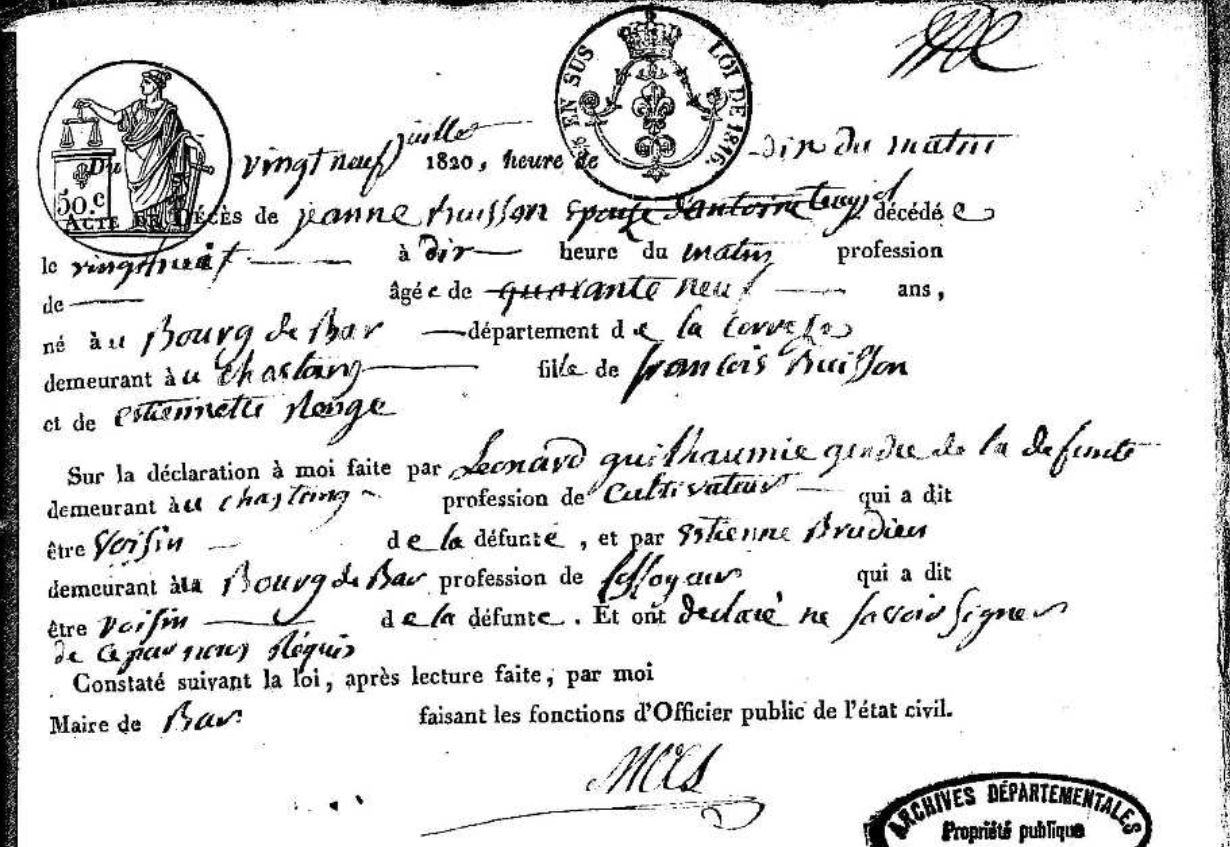 ¼ EN SUS LOI DE 1816.
50.c
Du vingt neuf juillet 1820, heure de dix du matin
ACTE DE DÉCÈS de jeanne buisson epouse d'antoine décédé e
le vingthuit à dix heure du matin profession
de âgé e de quarante neuf ans,
né à u Bourg de Bar département d e la Correze
demeurant à u Chastang fille de francois Buisson
et de Estiennette Rouge
Sur la déclaration à moi faite par Leonard guilhaumie gendre de la defunte
demeurant à u chastang profession de Cultivateur qui a dit
être Voisin d e la défunte, et par Estienne Brudieu
demeurant à u Bourg de Bar profession de qui a dit
être Voisin d e la défunte. Et ont declaré ne savoir signer
de ce par nous Requis
Constaté suivant la loi, après lecture faite, par moi
Maire de Bar faisant les fonctions d'Officier public de l'état civil.
ARCHIVES DÉPARTEMENTALES
Propriété publique